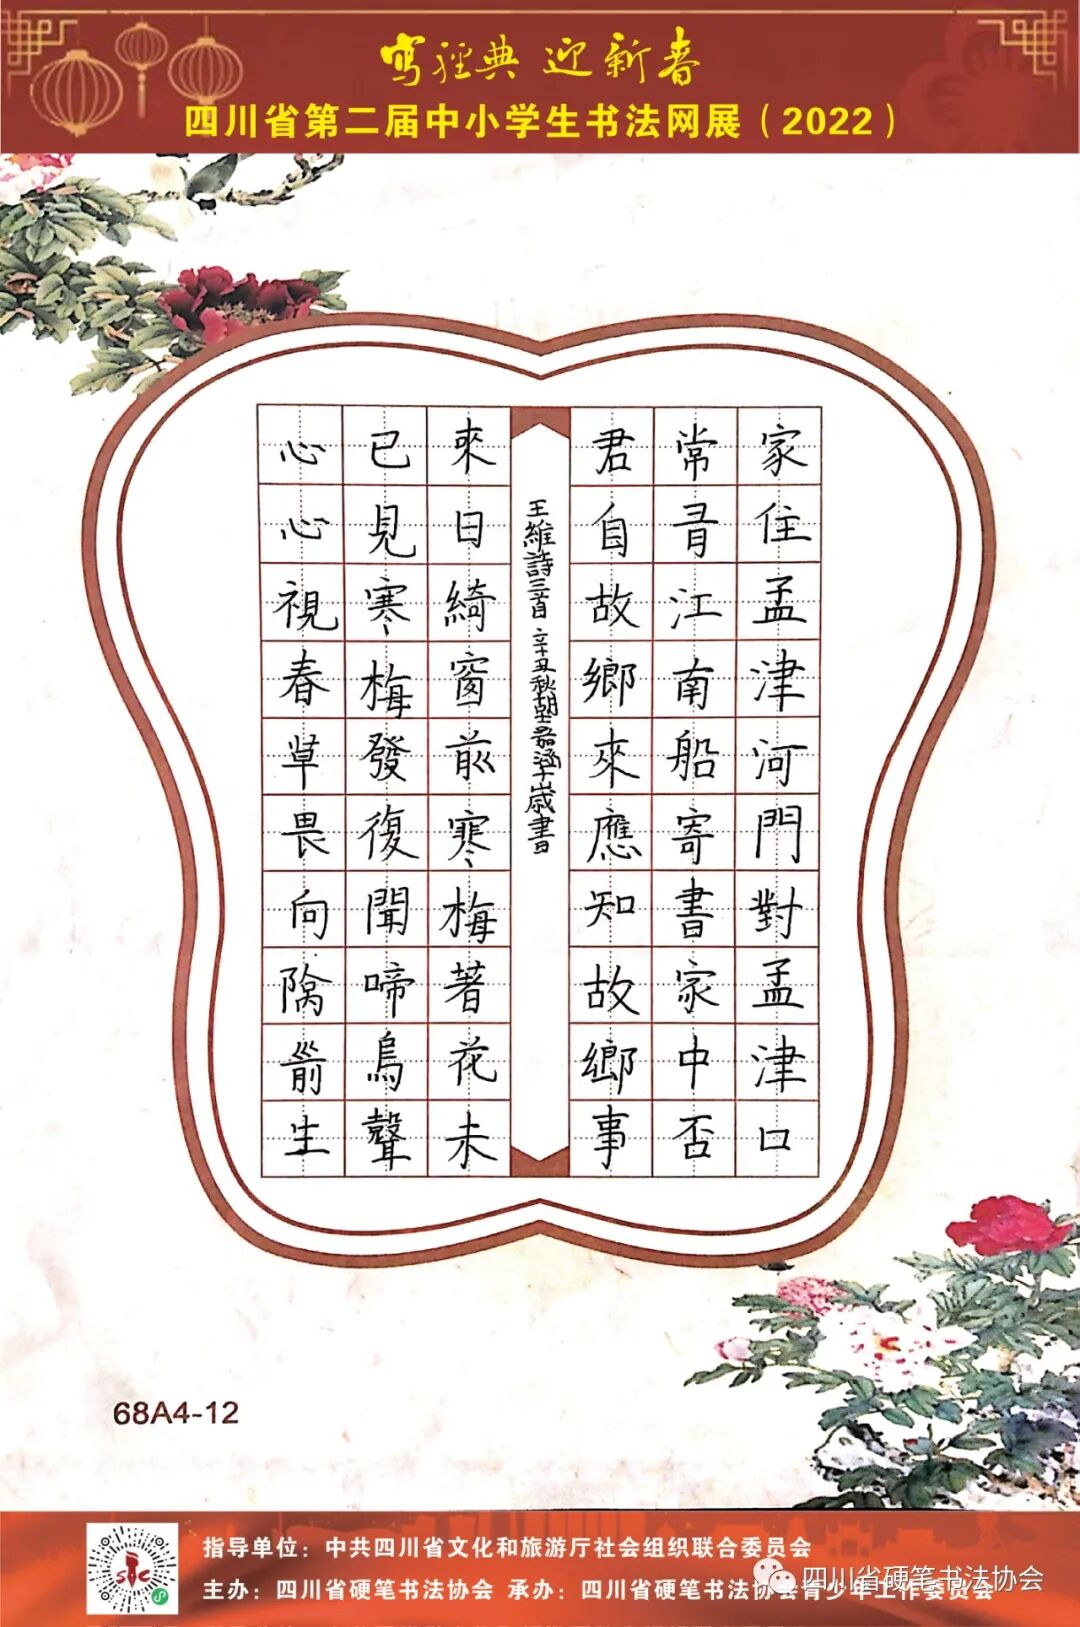 寫經典 迎新春
四川省第二届中小学生书法网展（2022）
家住孟津河門對孟津口
常有江南船寄書家中否
君自故鄉來應知故鄉事
王維詩三首 辛丑秋胡君涵十歲書
來日綺窗前寒梅著花未
已見寒梅發復聞啼鳥聲
心心視春草畏向階前生
68A4-12
指导单位：中共四川省文化和旅游厅社会组织联合委员会
主办：四川省硬笔书法协会 承办：四川省硬笔书法协会青少年工作委员会
四川省硬笔书法协会